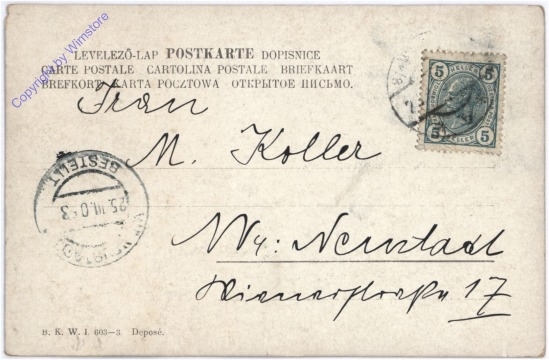 LEVELEZŐ-LAP POSTKARTE DOPISNICE
CARTE POSTALE CARTOLINA POSTALE BRIEFKAART
BREFKORT KARTA POCZTOWA ОТКРЫТОЕ ПИСЬМО.
Copyright by Wimstore
5 5
5 5
Frau
M. Koller
BESTELLT
25.III.0
Wr: Neustadt
Wienerstraße 17
B. K. W. I. 603—3. Deposé.